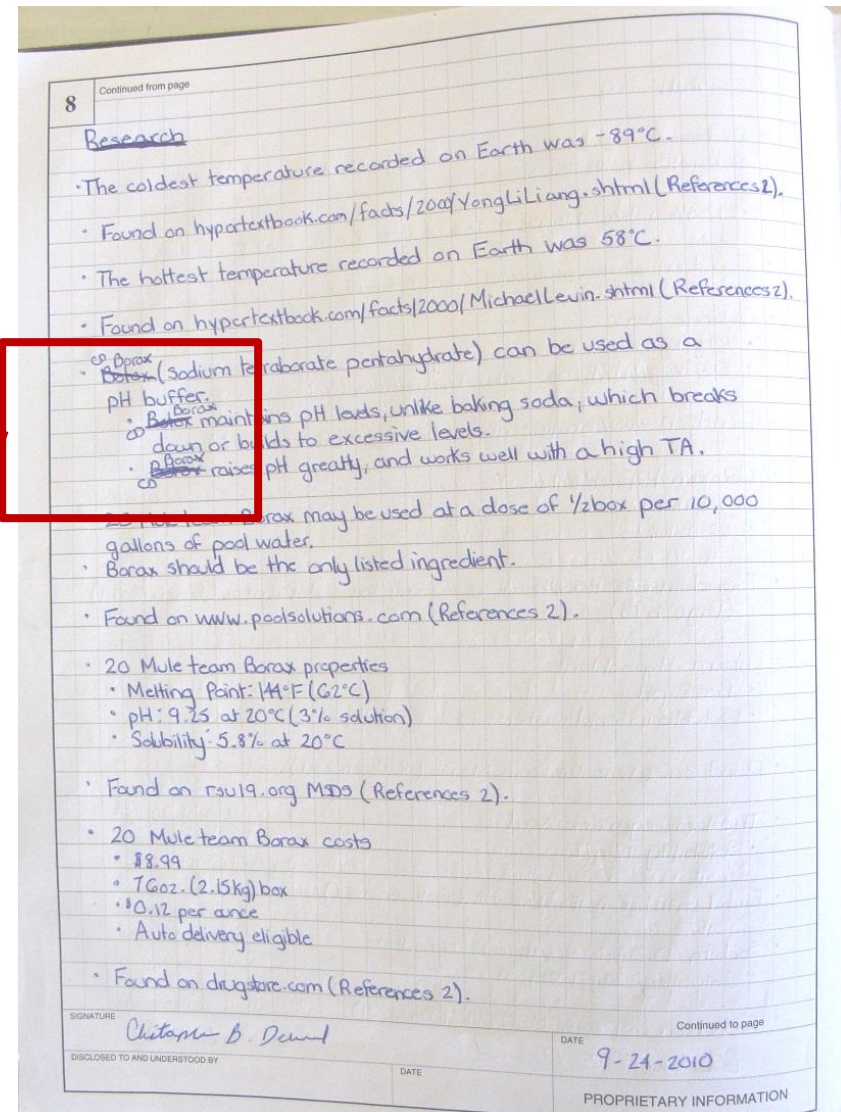 8 Continued from page
Research
· The coldest temperature recorded on Earth was -89°C.
· Found on hypertextbook.com/facts/2000/YongLiLiang.shtml (References 2).
· The hottest temperature recorded on Earth was 58°C.
· Found on hypertextbook.com/facts/2000/MichaelLevin.shtml (References 2).
Borax
· (sodium tetraborate pentahydrate) can be used as a
pH buffer.
Borax
· maintains pH levels, unlike baking soda, which breaks
down or builds to excessive levels.
Borax
· raises pH greatly, and works well with a high TA.
20 Mule team Borax may be used at a dose of 1/2 box per 10,000
gallons of pool water.
· Borax should be the only listed ingredient.
· Found on www.poolsolutions.com (References 2).
· 20 Mule team Borax properties
· Melting Point: 144°F (62°C)
· pH: 9.25 at 20°C (3% solution)
· Solubility: 5.8% at 20°C
· Found on rsu19.org MSDS (References 2).
· 20 Mule team Borax costs
· $8.99
· 76oz. (2.15kg) box
· $0.12 per ounce
· Auto delivery eligible
· Found on drugstore.com (References 2).
SIGNATURE
B.
Continued to page
DATE
9-24-2010
DISCLOSED TO AND UNDERSTOOD BY
DATE
PROPRIETARY INFORMATION